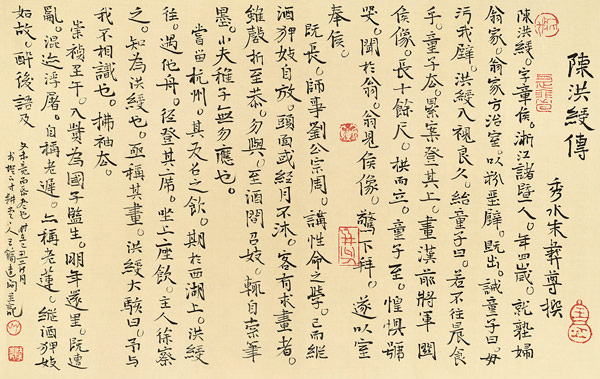 陳洪綬傳
秀水朱彝尊撰
陳洪綬。字章侯。浙江諸暨人。年四歲。就塾婦
翁家。翁家方治室。以粉堊壁。既出。誡童子曰。毋
污我壁。洪綬入視良久。紿童子曰。若不往晨食
乎。童子去。累案登其上。畫漢前將軍關
侯像。長十餘尺。拱而立。童子至。惶懼號
哭。聞於翁。翁見侯像。驚下拜。遂以室
奉侯。
既長。師事劉公宗周。講性命之學。已而縱
酒狎妓自放。頭面或經月不沐。客有求畫者。
雖罄折至恭。勿與。至酒間召妓。輒自索筆
墨。小夫稚子無勿應也。
嘗留杭州。其友召之飲。期於西湖上。洪綬
往。遇他舟。徑登其席。坐上座飲。主人徐察
之。知為洪綬也。亟稱其畫。洪綬大駭曰。子與
我不相識也。拂袖去。
崇禎壬午。入貲為國子監生。明年還里。既遭
亂。混迹浮屠。自稱老遲。亦稱老蓮。縱酒狎妓
如故。醉後語及